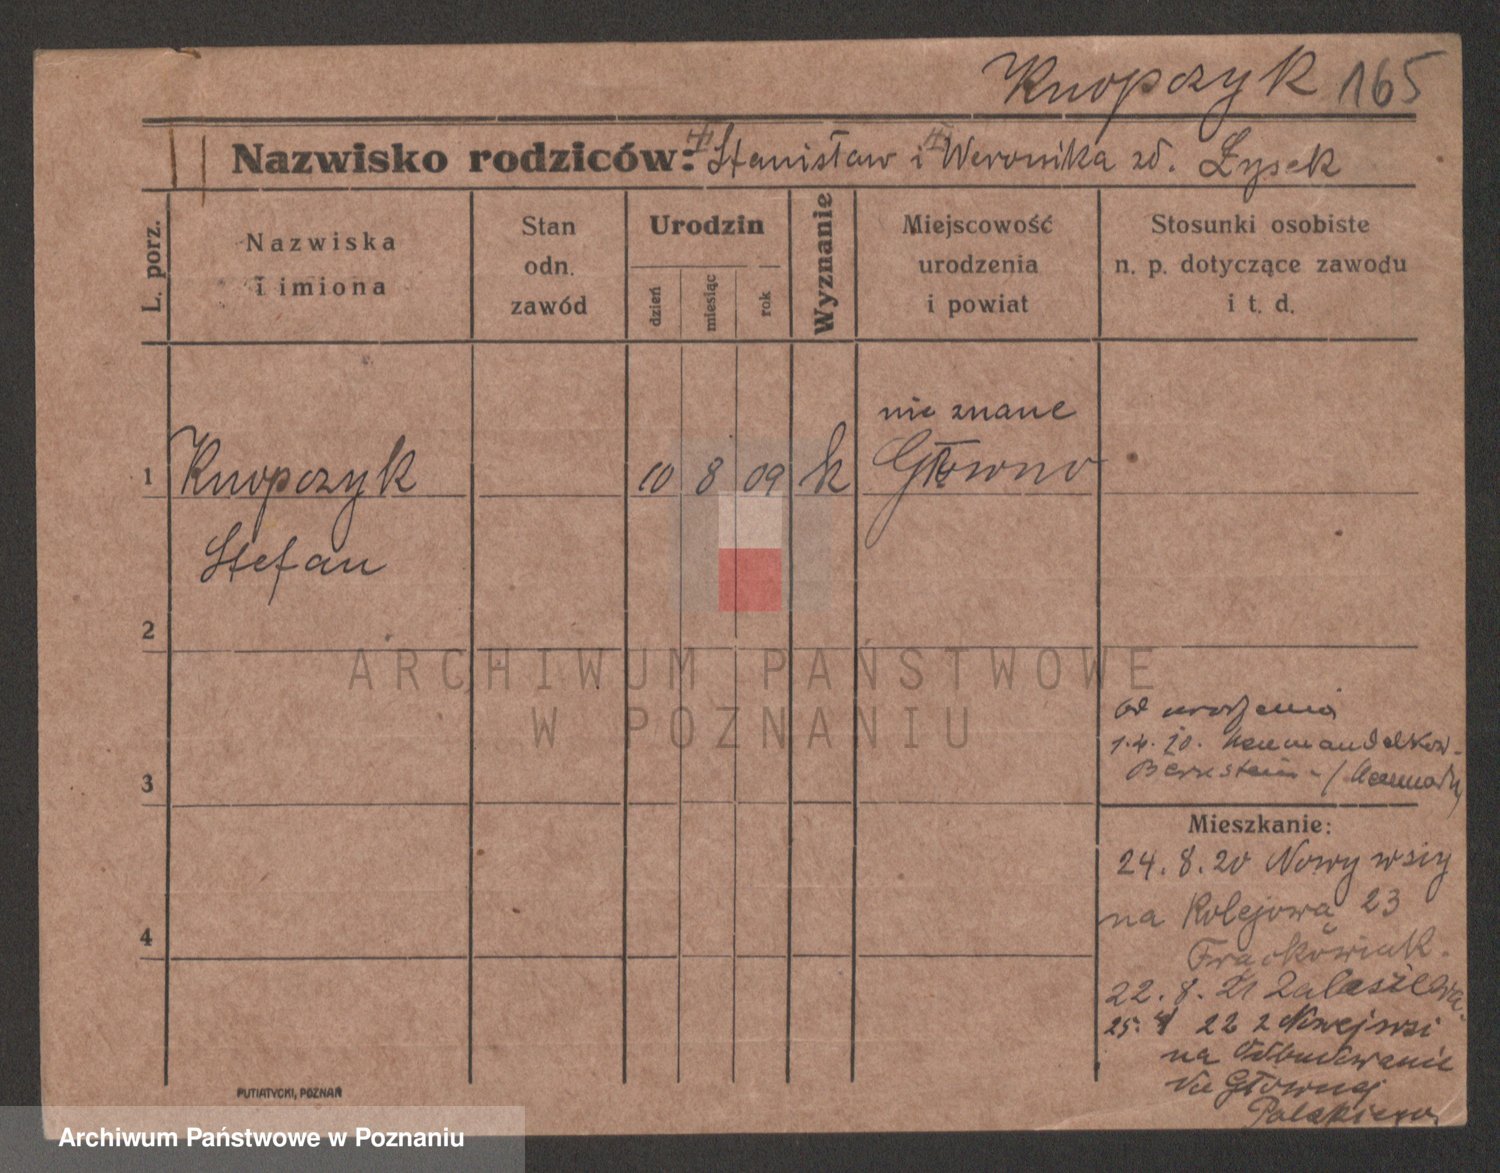 Knopczyk 165
Nazwisko rodziców: Stanisław i Weronika zd. Łysek
L. porz.
Nazwiska
i imiona
Stan
odn.
zawód
Urodzin
dzień
miesiąc
rok
Wyznanie
Miejscowość
urodzenia
i powiat
Stosunki osobiste
n. p. dotyczące zawodu
i t. d.
nie znane
1 Knopczyk 10 8 09 k Główno
Stefan
2
ARCHIWUM PAŃSTWOWE
W POZNANIU
od urodzenia
1.4.20.
3
Mieszkanie:
24.8.20 Nowy wsiy
na Kolejowa 23
Frąckowiak.
22.8.21
4
25. 22 z Nowejwsi
na Odbudowanie
Głównej
PUTIATYCKI, POZNAŃ
Archiwum Państwowe w Poznaniu